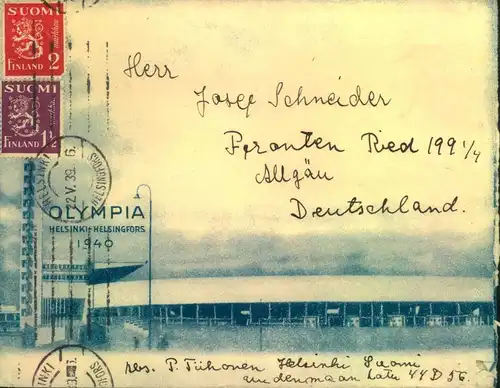 SUOMI
2
markkaa
FINLAND 2
SUOMI
markkaa
FINLAND 1½
Herr
Josef Schneider
Pfronten Ried 199 1/4
Allgäu
Deutschland.
HELSINKI
22.V.39. 16.
HELSINGFORS
OLYMPIA
HELSINKI-HELSINGFORS
1940
P. Tiihonen Helsinki Suomi
44 D 56